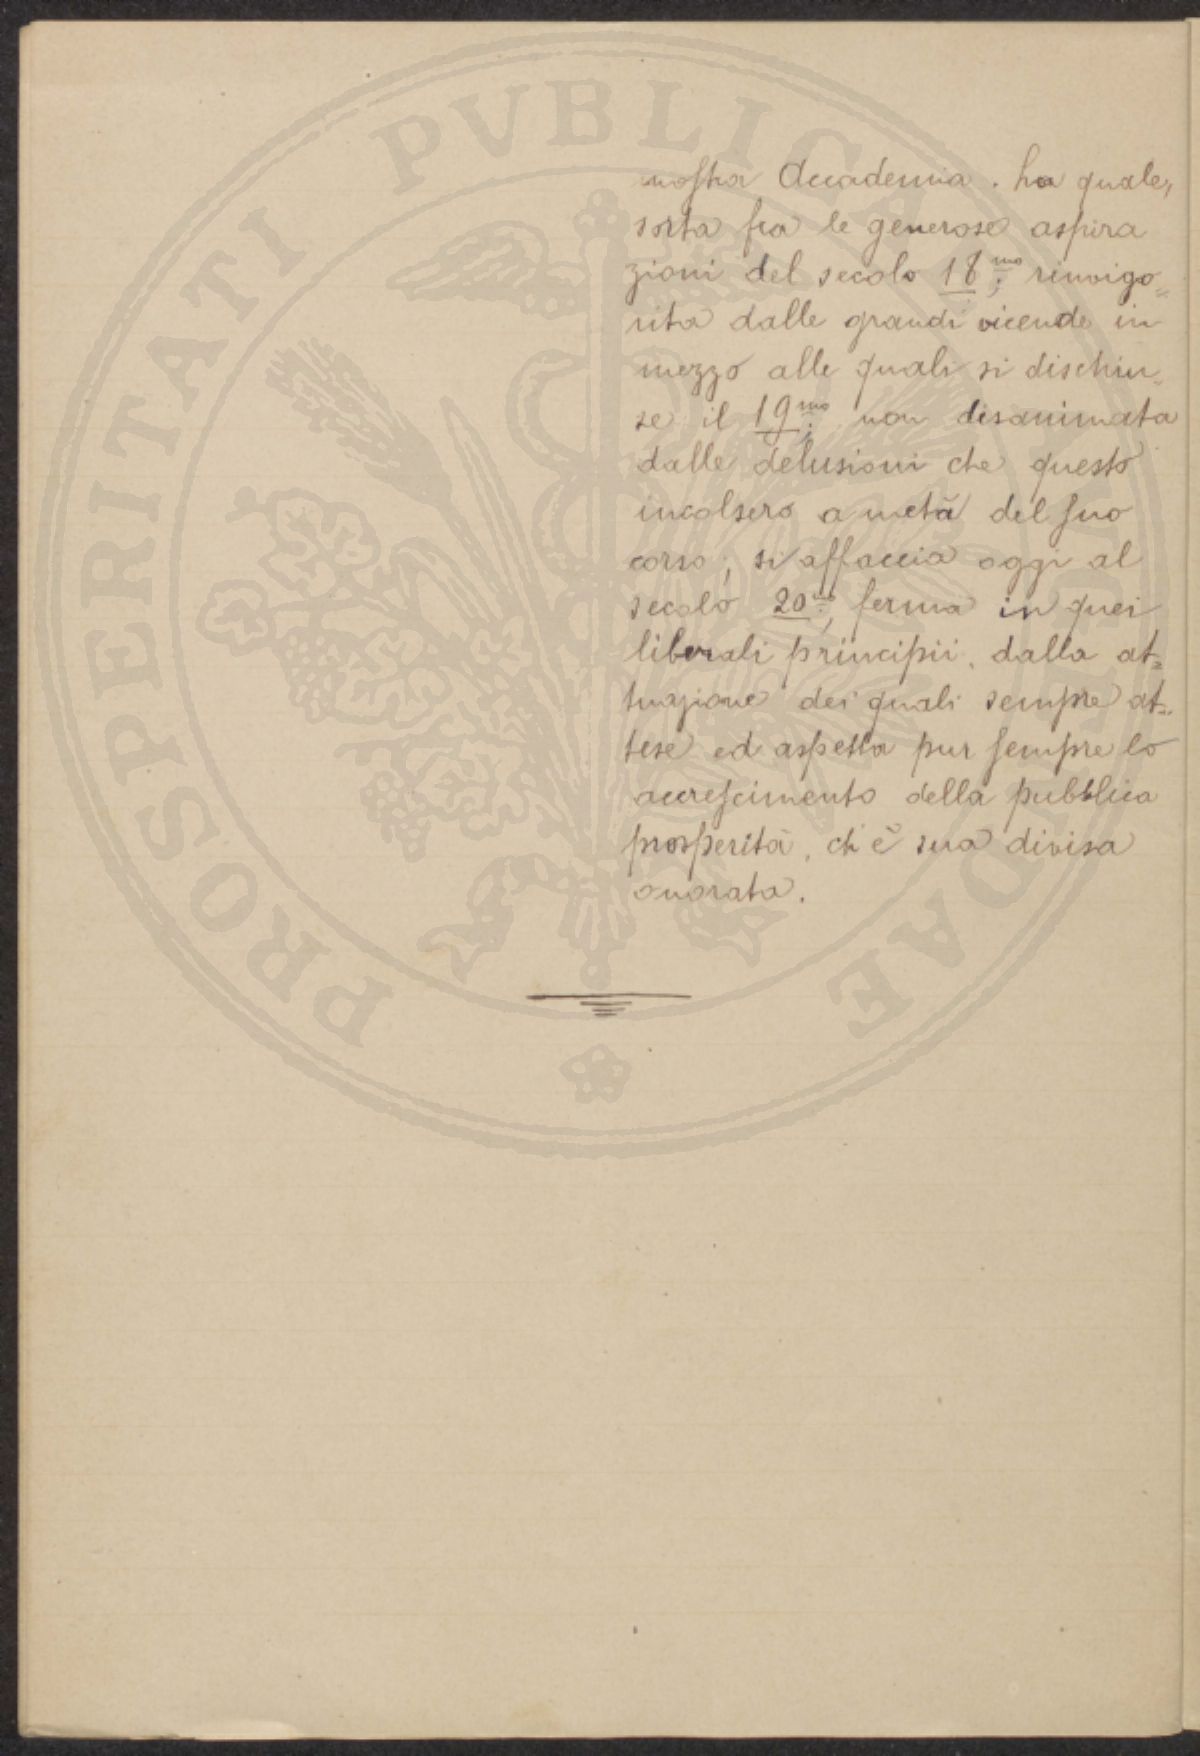 PROSPERITATI PVBLICAE AVGENDAE
nostra Accademia. La quale,
sorta fra le generose aspira
zioni del secolo 18mo; rinvigo=
rita dalle grandi vicende in
mezzo alle quali si dischiu=
se il 19mo; non disanimata
dalle delusioni che questo
incolsero a metà del suo
corso; si affaccia oggi al
secolo 20mo, ferma in quei
liberali principii, dalla at=
tuazione dei quali sempre at=
tese ed aspetta pur sempre lo
accrescimento della pubblica
prosperità, ch'è sua divisa
onorata.